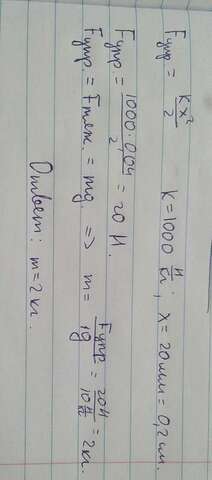 Fупр = Kx²/2 K=1000 Н/кг; x=20мм=0,2см.
Fупр = 1000·0,04/2 = 20 Н.
Fупр. = Fтяж. = mg => m = Fупр/g = 20Н/10 = 2кг.
Ответ: m=2кг.